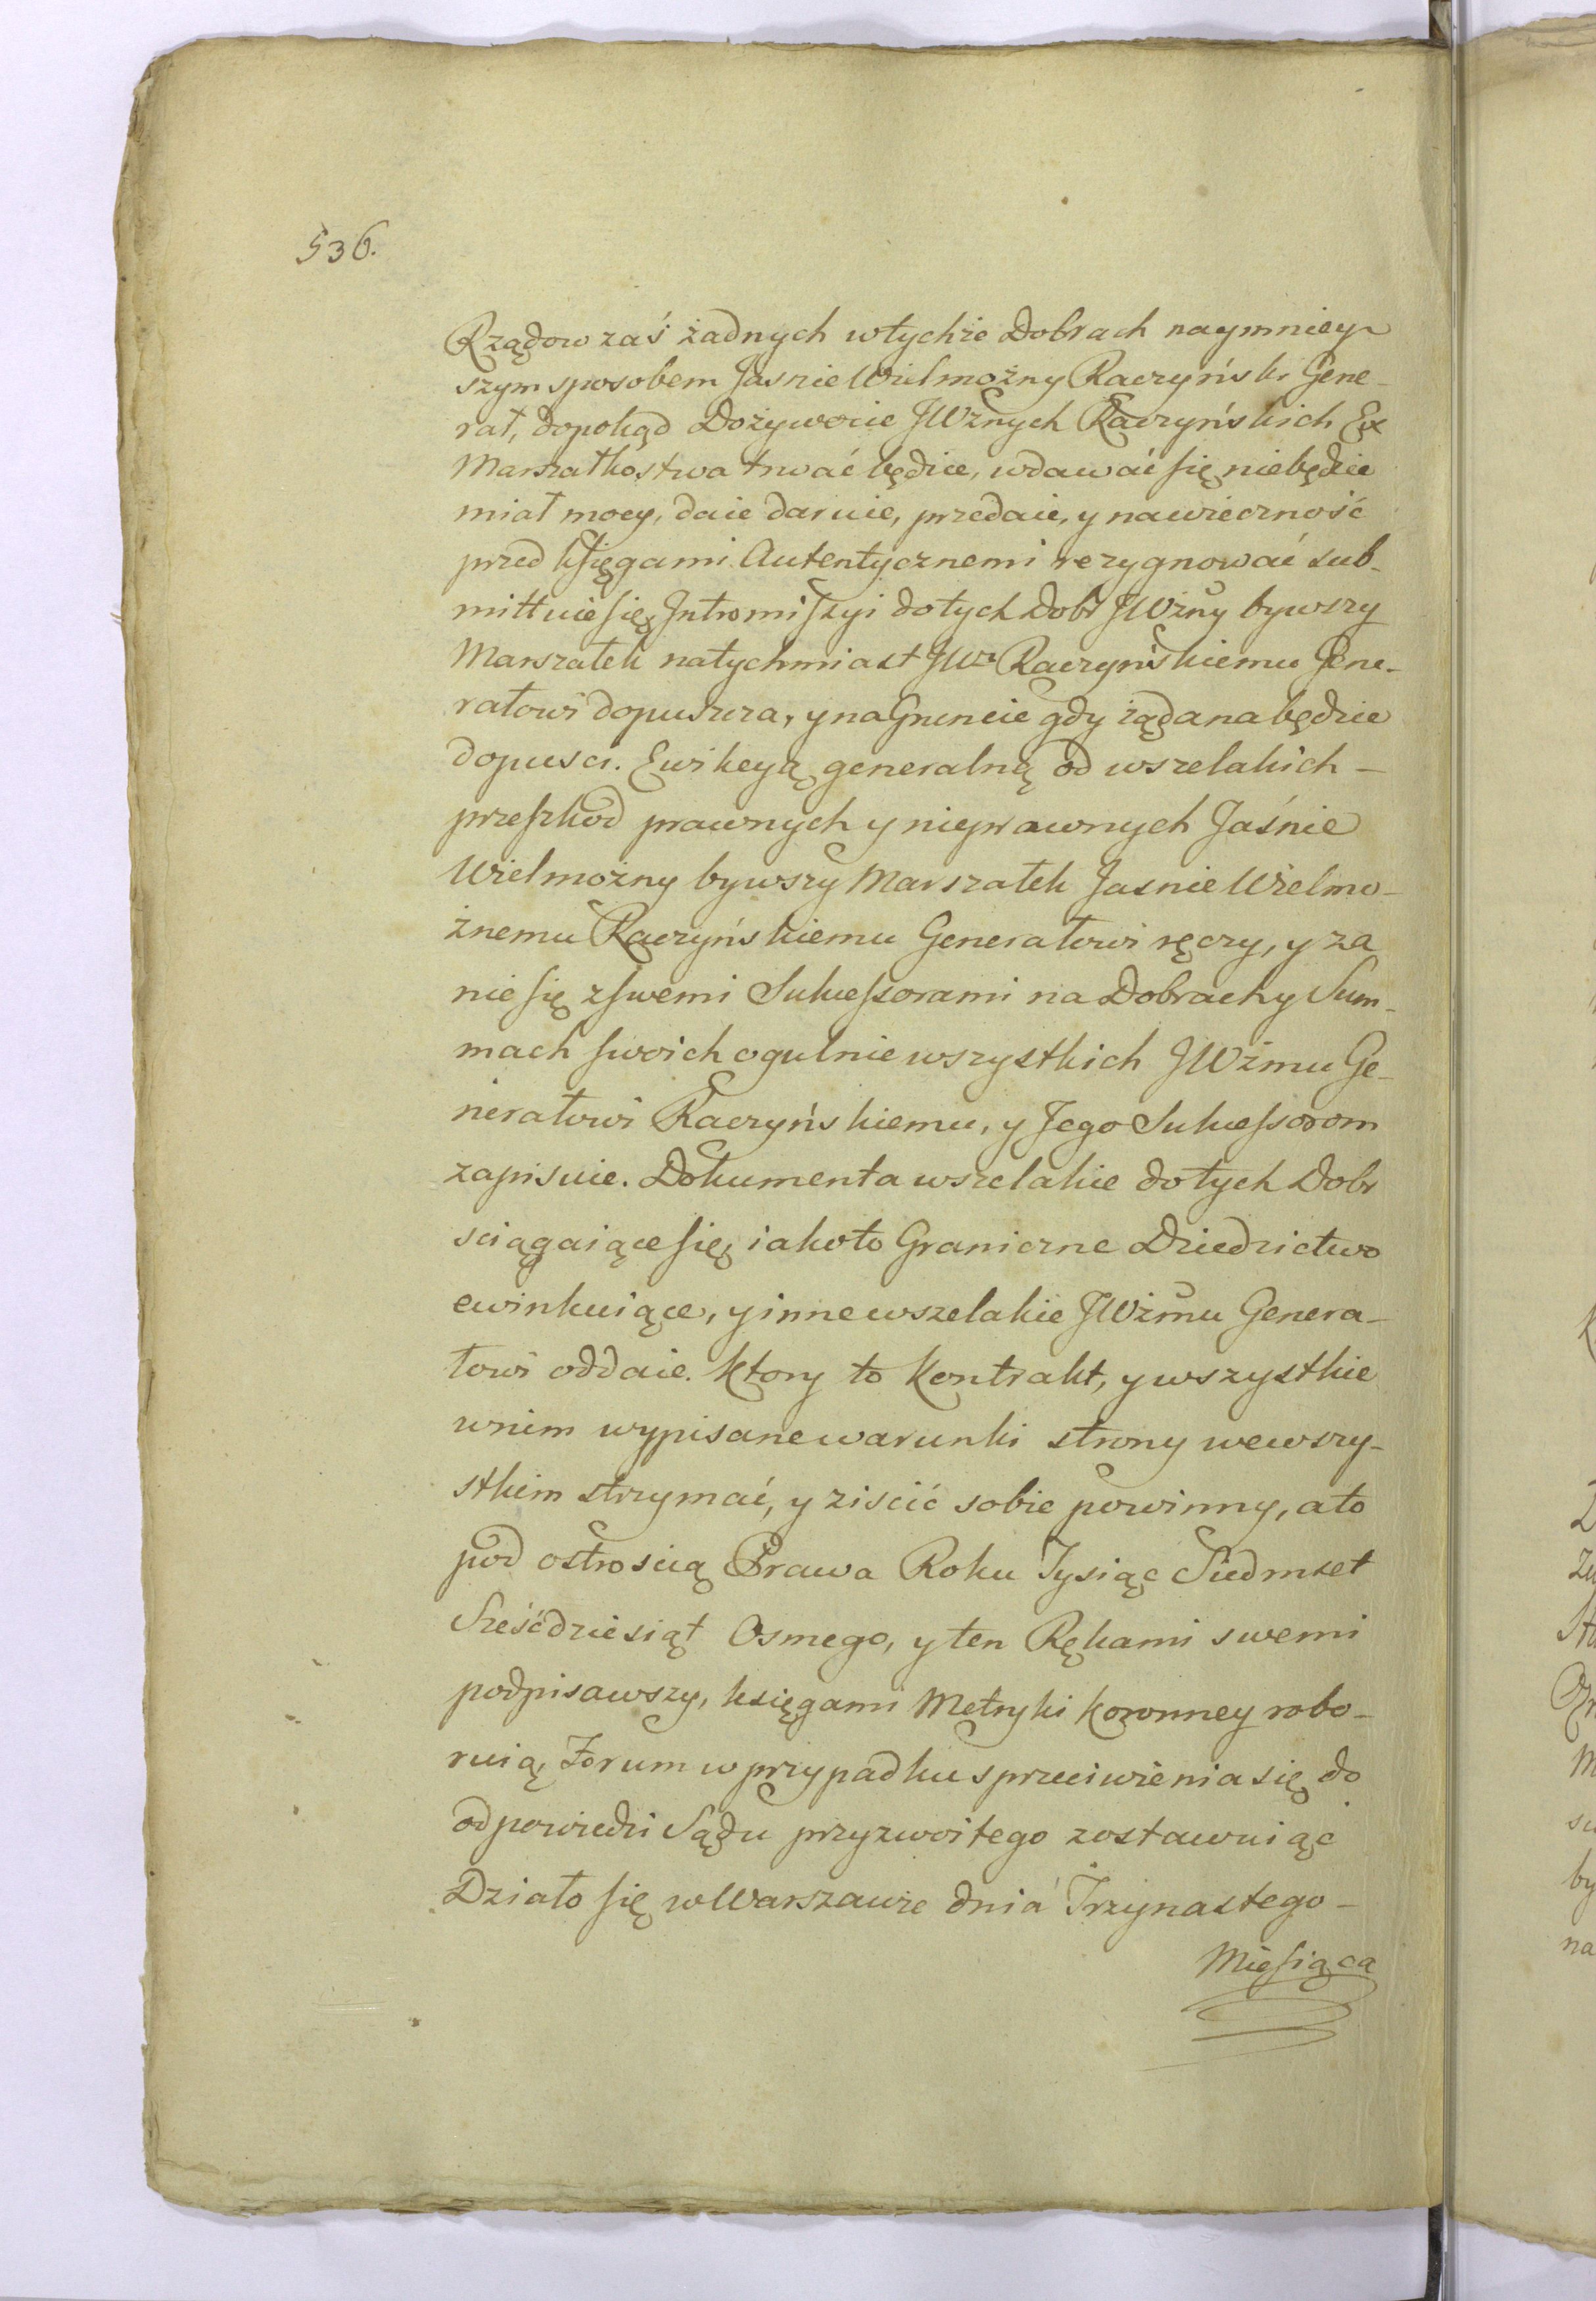 536.
Rządow zaś żadnych wtychże Dobrach naymniey
szym sposobem Jasnie Wielmożny Raczyński Gene-
rał, dopokąd Dożywocie JWżnych Raczyńskich Ex
Marszałkostwa trwać będzie, wdawać się niebędzie
miał mocy, daie daruie, przedaie, y nawieczność
przed księgami Autentycznemi rezygnować sub-
mittuie się, Intromissyi do tych Dobr JWżny bywszy
Marszałek natychmiast JWu Raczyńskiemu Gene-
rałowi dopuszcza, y na Gruncie gdy żądana będzie
dopusci. Ewikcyą generalną od wszelakich -
przeszkod prawnych y nieprawnych Jaśnie
Wielmożny bywszy Marszałek Jasnie Wielmo-
żnemu Raczyńskiemu Generałowi ręczy, y za
nie się zswemi Sukcessorami na Dobrach y Sum-
mach swoich ogulnie wszystkich JWżmu Ge-
nerałowi Raczyńskiemu, y Jego Sukcessorom
zapisuie. Dokumenta wszelakie do tych Dobr
sciągaiące się, iako to Graniczne Dziedzictwo
ewinkuiące, y inne wszelakie JWżmu Genera-
łowi oddaie. Ktory to Kontrakt, y wszystkie
wnim wypisane warunki strony wewszy-
stkim strzymać, y ziscić sobie powinny, a to
pod ostroscią Prawa Roku Tysiąc Siedmset
Sześćdziesiąt Osmego, y ten Rękami swemi
podpisawszy, księgami Metryki Koronney robo-
ruią, Forum w przypadku sprzeciwienia się do
odpowiedzi Sądu przyzwoitego zostawuiąc
Działo się w Warszawie dnia Trzynastego -
Miesiąca